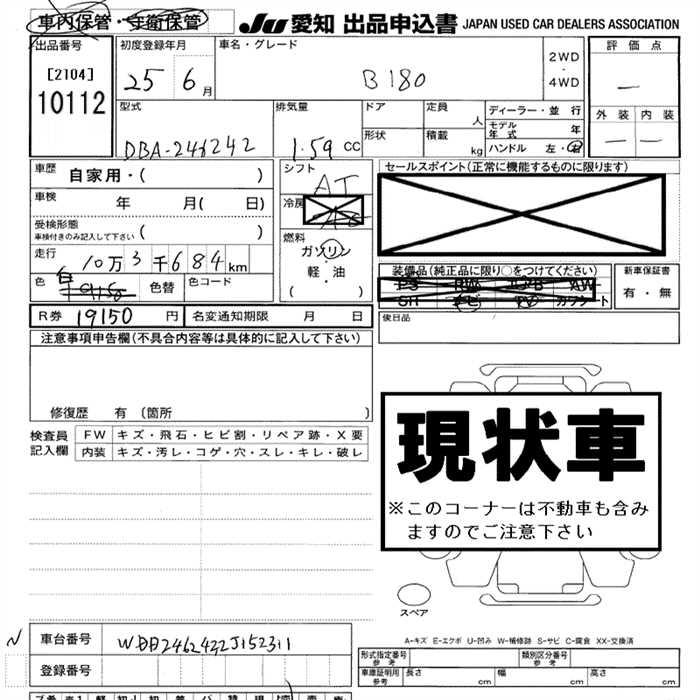 車内保管・守衛保管
JU 愛知 出品申込書 JAPAN USED CAR DEALERS ASSOCIATION
出品番号
[2104]
10112
初度登録年月
25年6月
車名・グレード
B180
2WD
・
4WD
評価点
—
外装 内装
— —
型式
DBA-246242
排気量
1.59 CC
ドア
定員 人
形状
積載 kg
ディーラー・並行
モデル年式 年
ハンドル 左・右
車歴 自家用・( )
車検 年 月( 日)
受検形態
車検付きのみ記入して下さい ( )
走行 10万3千684km
色
色替
色コード
シフト
AT
冷房
燃料
ガソリン
軽・油
( )
セールスポイント(正常に機能するものに限ります)
装備品(純正品に限り○をつけてください)
PS PW エアB AW
SR ナビ TV カワシート
新車保証書
有・無
R券 19150 円
名変通知期限 月 日
後日品
注意事項申告欄(不具合内容等は具体的に記入して下さい)
修復歴 有(箇所 )
検査員記入欄
FW キズ・飛石・ヒビ割・リペア跡・X要
内装 キズ・汚レ・コゲ・穴・スレ・キレ・破レ
現状車
※このコーナーは不動車も含み
ますのでご注意下さい
スペア
A-キズ E-エクボ U-凹み W-補修跡 S-サビ C-腐食 XX-交換済
車台番号 WDD2462422J152311
登録番号
形式指定番号
参考
類別区分番号
参考
車庫証明用
参考
長さ cm
幅 cm
高さ cm